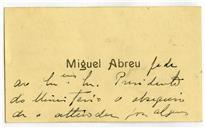 Miguel Abreu pede
ao Exmo Sr. Presidente
do Ministerio o obsequio
de o attender